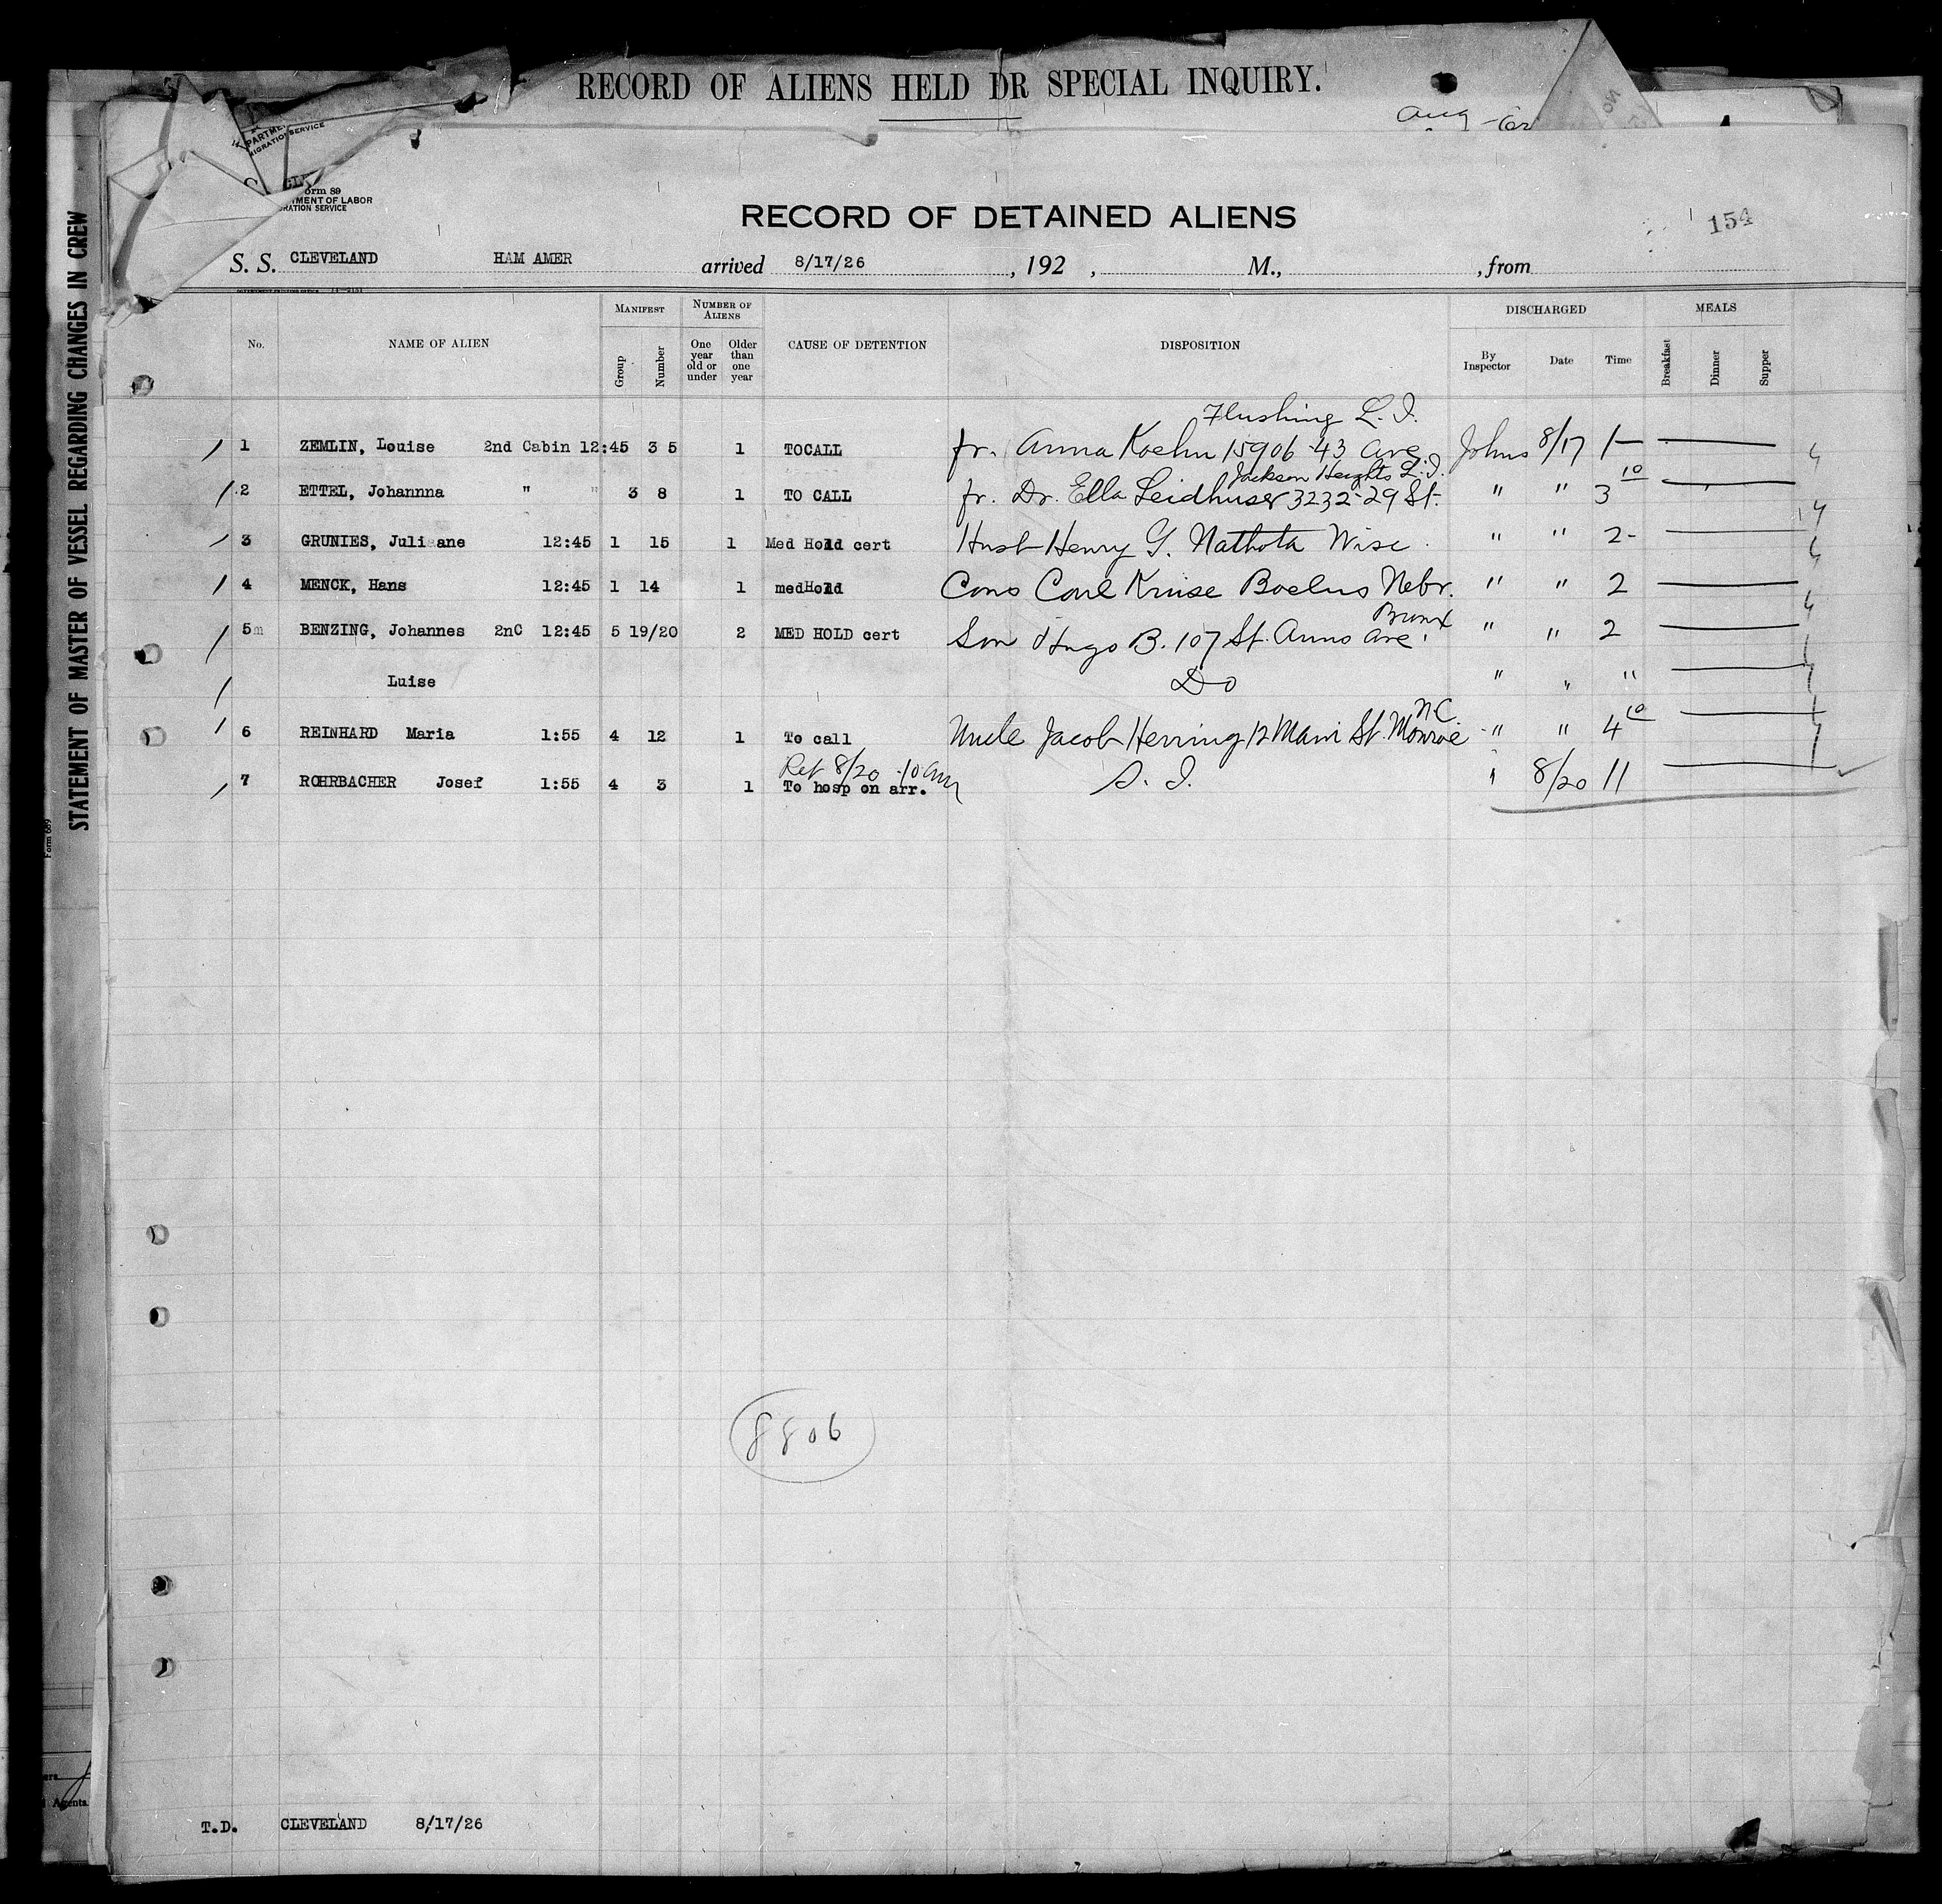 RECORD OF ALIENS HELD OR SPECIAL INQUIRY.
Aug
PARTME
MIGRATION SERVICE
orm 89
MENT OF LABOR
RATION SERVICE
RECORD OF DETAINED ALIENS
154
S. S. CLEVELAND HAM AMER arrived 8/17/26 , 192 , M., , from
MANIFEST NUMBER OF ALIENS DISCHARGED MEALS
No. NAME OF ALIEN Group Number One year old or under Older than one year CAUSE OF DETENTION DISPOSITION By Inspector Date Time Breakfast Dinner Supper
Flushing L. I.
1 ZEMLIN, Louise 2nd Cabin 12:45 3 5 1 TOCALL fr. Anna Koehn 15906-43 Ave. Johns 8/17 1—
Jackson Heights L. I.
2 ETTEL, Johannna " " 3 8 1 TO CALL fr. Dr. Ella Leidhuser 3232-29 St. " " 3 10
3 GRUNIES, Juliane 12:45 1 15 1 Med Hold cert Husb Henry G. Wise " " 2-
4 MENCK, Hans 12:45 1 14 1 medHold Cons Carl Kruse Boelus Nebr. " " 2
Bronx
5m BENZING, Johannes 2nC 12:45 5 19/20 2 MED HOLD cert Son Hugo B. 107 St. Anns Ave. " " 2
Luise Do " " "
N.C.
6 REINHARD Maria 1:55 4 12 1 To call Uncle Jacob Herring 12 Main St. Monroe " " 4 10
Ret 8/20 10 am
7 ROHRBACHER Josef 1:55 4 3 1 To hosp on arr. S. I. " 8/20 11
8806
T.D. CLEVELAND 8/17/26
STATEMENT OF MASTER OF VESSEL REGARDING CHANGES IN CREW
Form 689
Agents